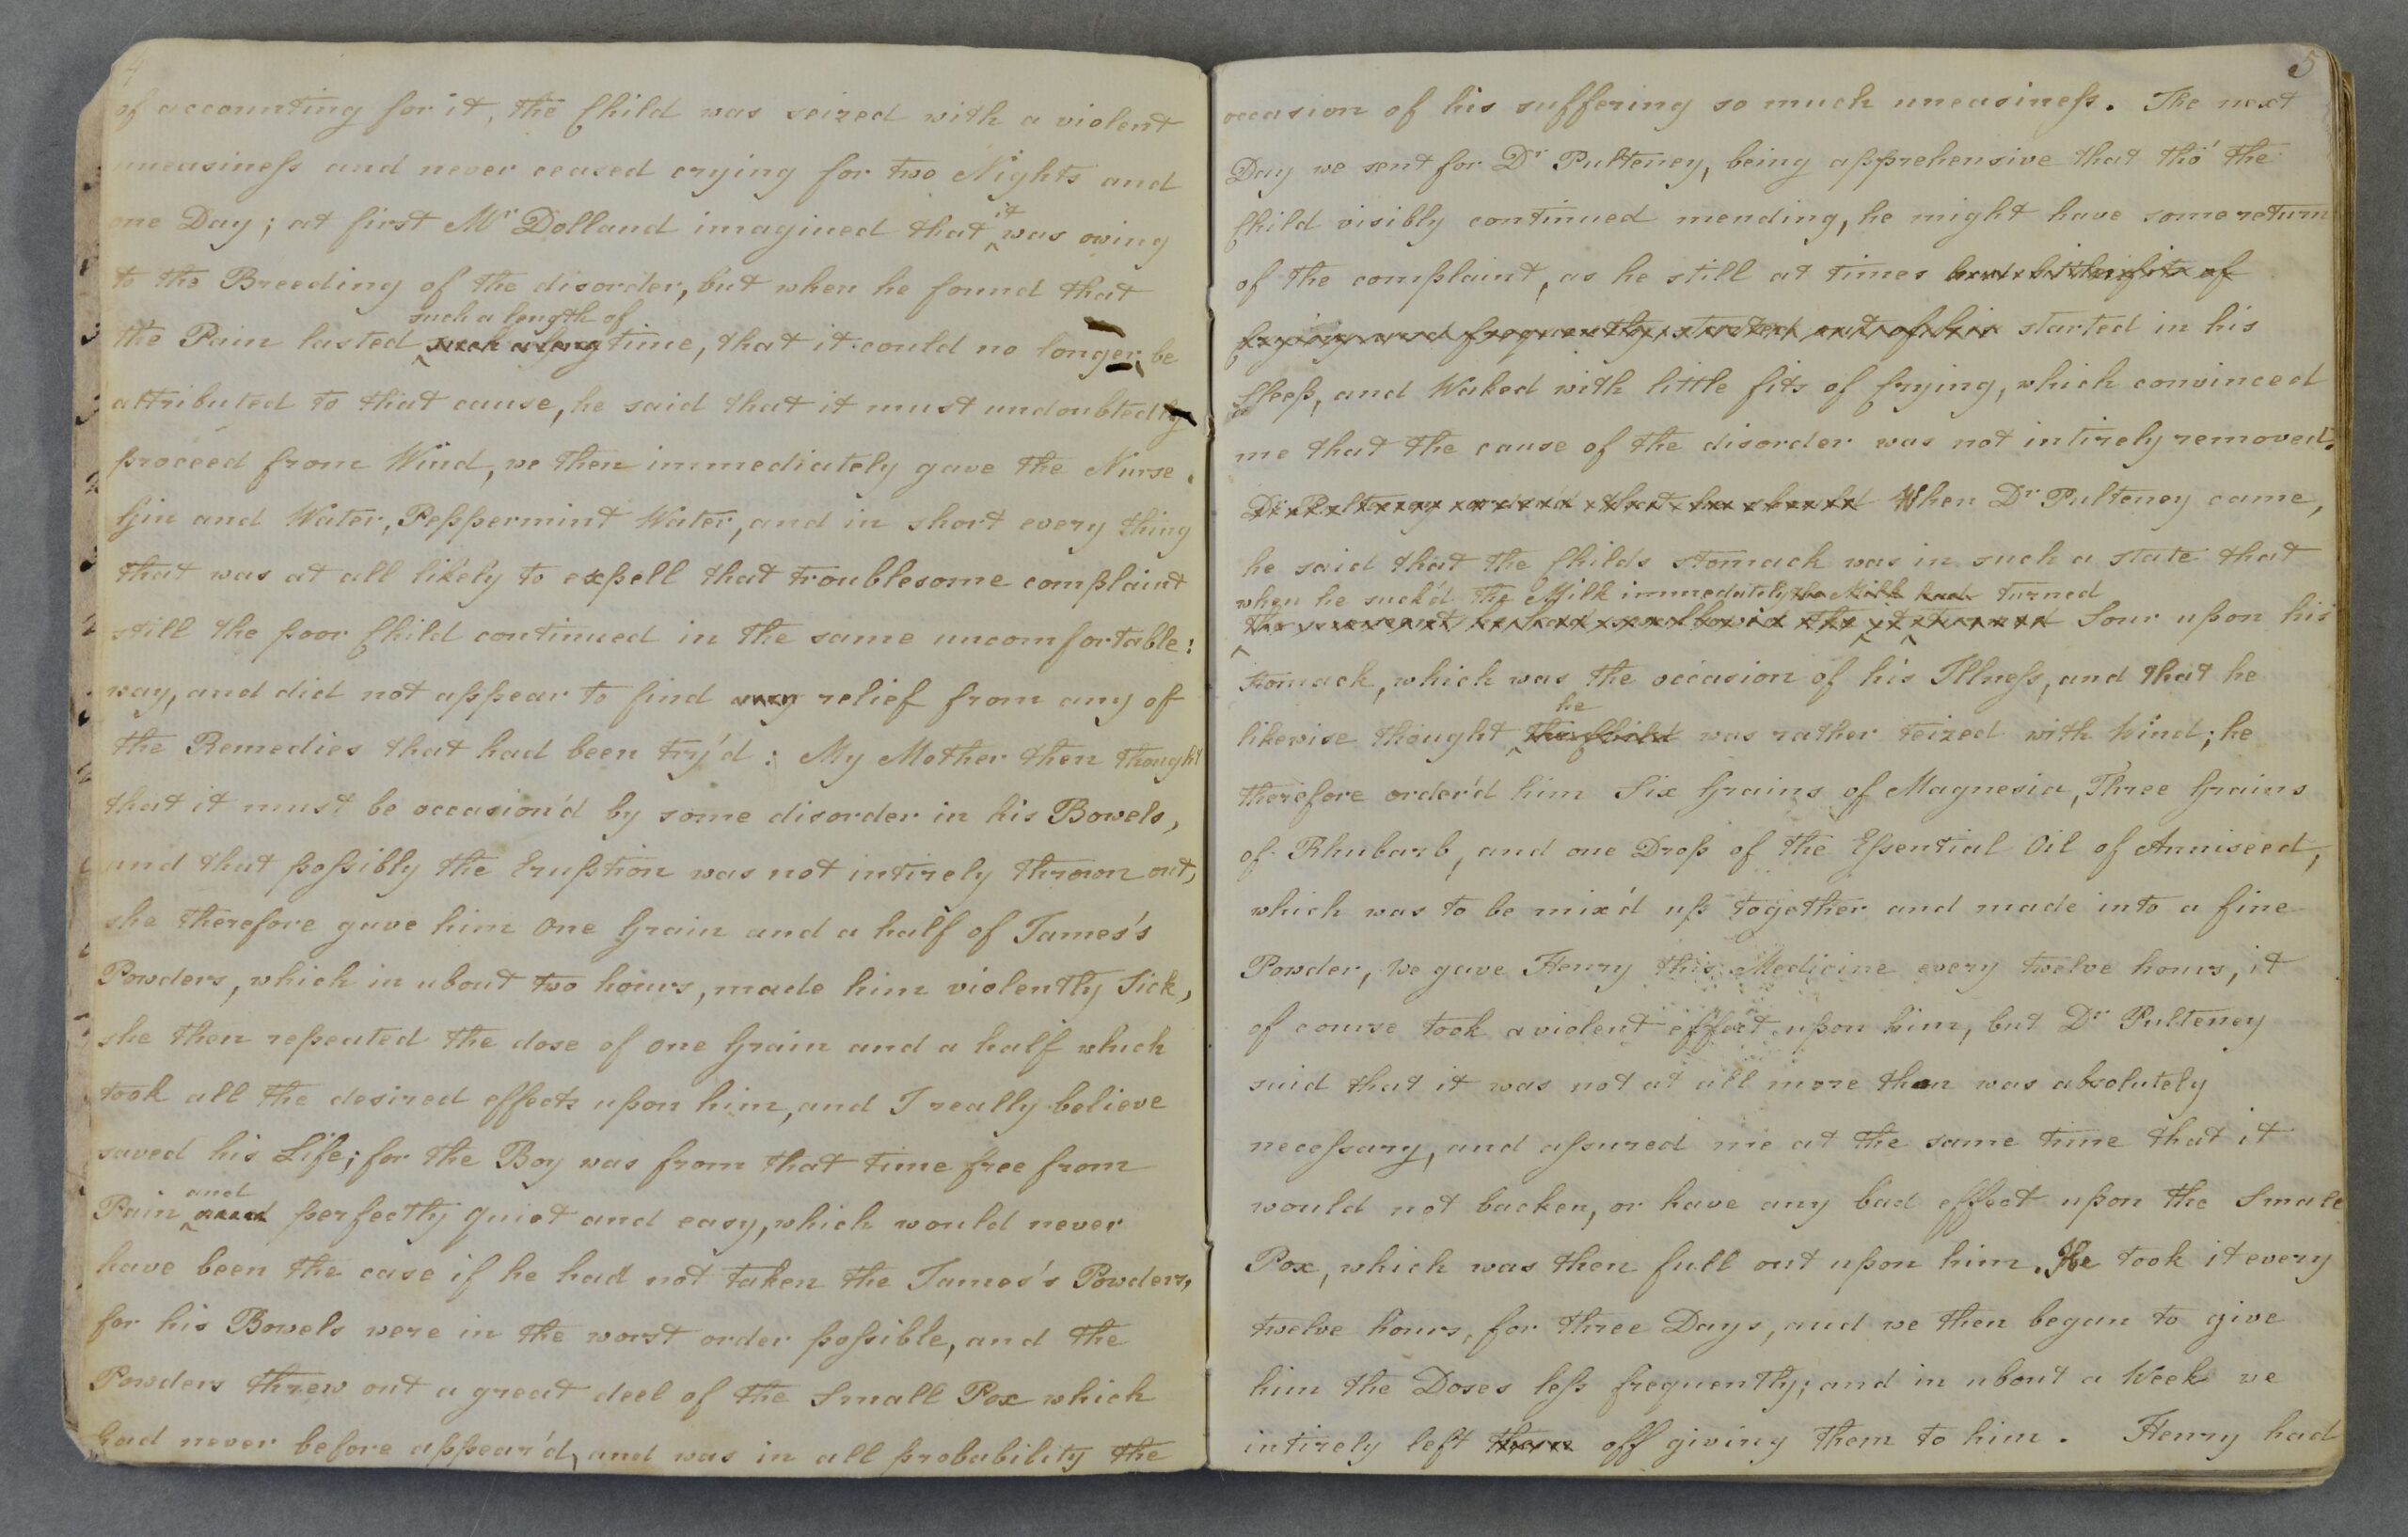 4
of accounting for it, the Child was seized with a violent
uneasiness and never ceased crying for two Nights and
one Day; at first Mr Dolland imagined that it was owing
to the Breeding of the disorder, but when he found that
the Pain lasted such a length of such a long time, that it could no longer be
attributed to that cause, he said that it must undoubtedly
proceed from Wind, we then immediately gave the Nurse
Gin and Water, Peppermint Water, and in short every thing
that was at all likely to expell that troublesome complaint
still the poor Child continued in the same uncomfortable
way, and did not appear to find any relief from any of
the Remedies that had been try'd: My Mother then thought
that it must be occasion'd by some disorder in his Bowels,
and that possibly the Eruption was not intirely thrown out,
she therefore gave him One Grain and a half of James's
Powders, which in about two hours, made him violently Sick,
she then repeated the dose of one Grain and a half which
took all the desired effects upon him, and I really believe
saved his Life; for the Boy was from that time free from
Pain and perfectly quiet and easy, which would never
have been the case if he had not taken the James's Powders,
for his Bowels were in the worst order possible, and the
Powders threw out a great deel of the Small Pox which
had never before appear'd, and was in all probability the
5
occasion of his suffering so much uneasiness. The next
Day we sent for Dr Pulteney, being apprehensive that tho' the
Child visibly continued mending, he might have some return
of the complaint, as he still at times had little fits of
Crying and frequently started out of his started in his
Sleep, and Waked with little fits of Crying, which convinced
me that the cause of the disorder was not intirely removed.
Dr Pulteney order'd that he should When Dr Pulteney came,
he said that the Childs stomack was in such a state that
when he suck'd the Milk immediately the Milk had turned
the moment he had swallow'd the it turned Sour upon his
stomack, which was the occasion of his Illness, and that he
likewise thought he the Child was rather teized with Wind; he
therefore order'd him Six Grains of Magnesia, Three Grains
of Rhubarb, and one Drop of the Essential Oil of Anniseed,
which was to be mix'd up together and made into a fine
Powder, we gave Henry this Medicine every twelve hours, it
of course took a violent effect upon him, but Dr Pulteney
said that it was not at all more than was absolutely
necessary, and assured me at the same time that it
would not backen, or have any bad effect upon the Small
Pox, which was then full out upon him. He took it every
twelve hours, for three Days, and we then began to give
him the Doses less frequently; and in about a Week we
intirely left them off giving them to him. Henry had